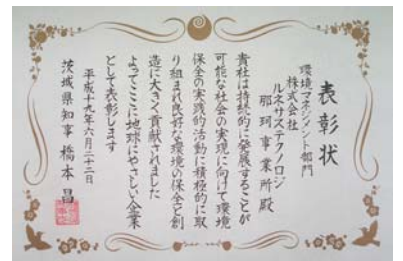 表彰状
環境マネジメント部門
株式会社
ルネサステクノロジ
那珂事業所殿
貴社は持続的に発展することが
可能な社会の実現に向けて環境
保全の実践的活動に積極的に取
り組まれ良好な環境の保全と創
造に大きく貢献されました
よってここに地球にやさしい企業
として表彰します
平成十九年六月二十二日
茨城県知事 橋本昌